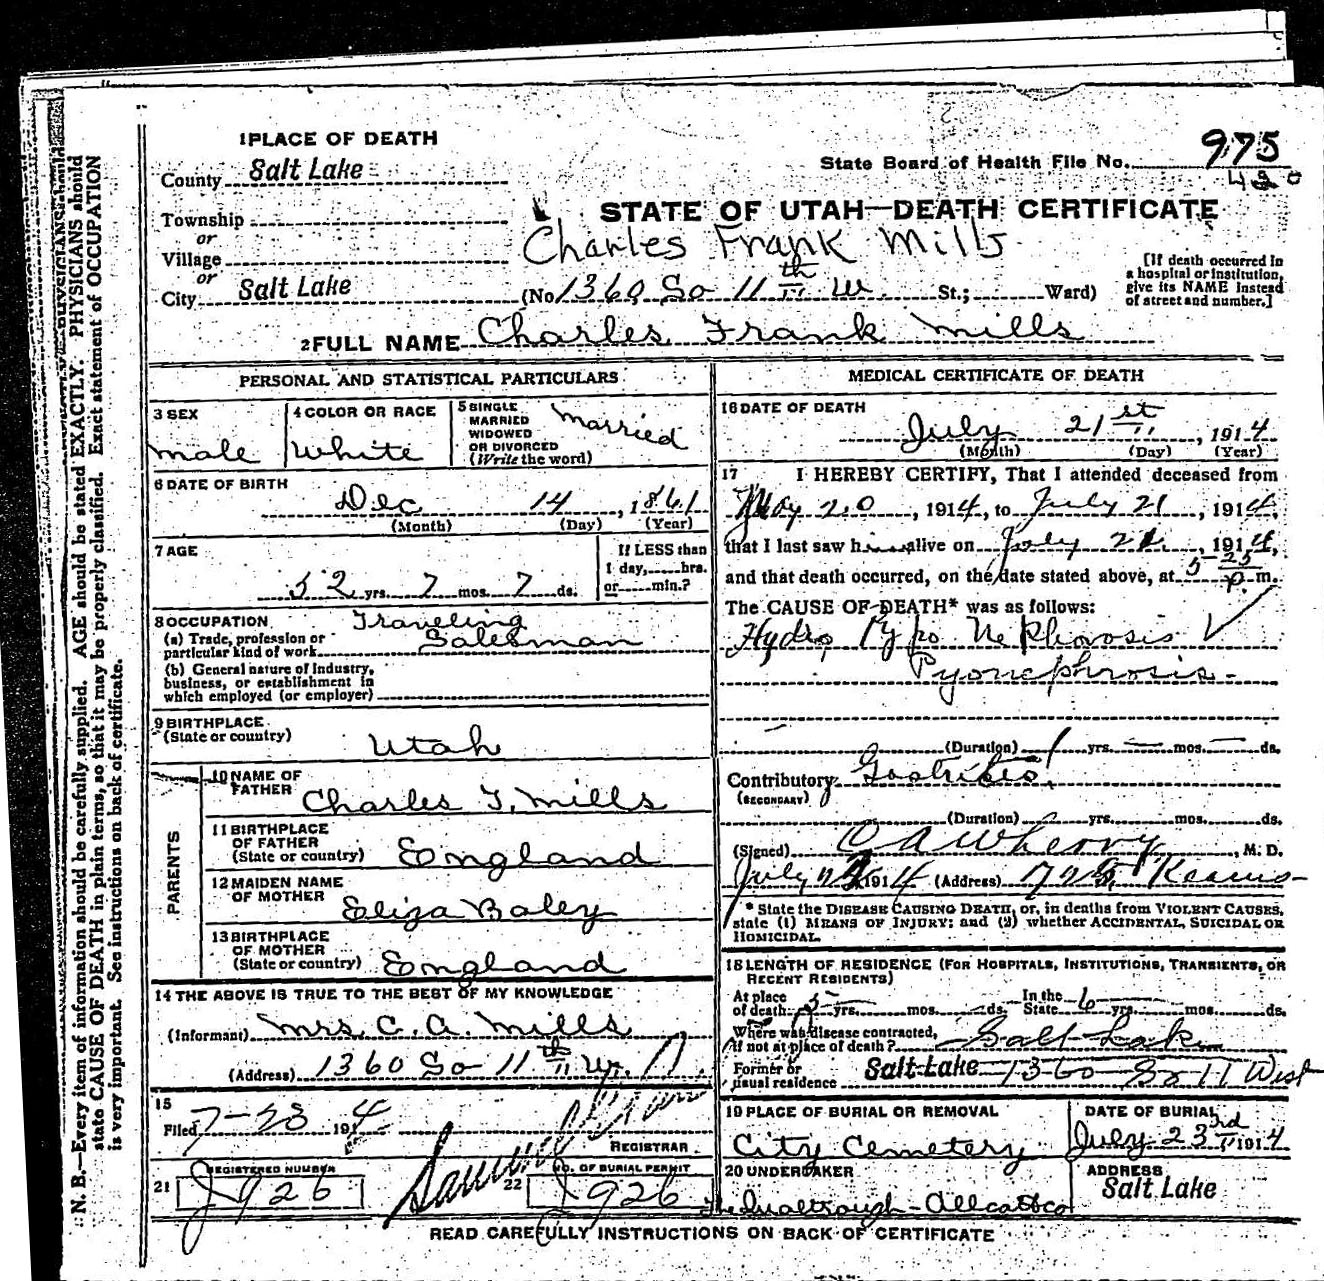 1 PLACE OF DEATH
State Board of Health File No. 975
County Salt Lake
STATE OF UTAH—DEATH CERTIFICATE
Township
or
Charles Frank Mills
Village
or
City Salt Lake (No 1360 So 11th W. St.; Ward)
[If death occurred in
a hospital or institution,
give its NAME instead
of street and number.]
2 FULL NAME Charles Frank Mills
PERSONAL AND STATISTICAL PARTICULARS
3 SEX
male
4 COLOR OR RACE
White
5 SINGLE
MARRIED
WIDOWED
OR DIVORCED
(Write the word)
Married
6 DATE OF BIRTH
Dec 14, 1861
(Month) (Day) (Year)
7 AGE
52 yrs. 7 mos. 7 ds.
If LESS than
1 day, hrs.
or min.?
8 OCCUPATION
(a) Trade, profession or
particular kind of work
Traveling
Salesman
(b) General nature of Industry,
business, or establishment in
which employed (or employer)
9 BIRTHPLACE
(State or country)
Utah
PARENTS
10 NAME OF
FATHER
Charles F. Mills
11 BIRTHPLACE
OF FATHER
(State or country)
England
12 MAIDEN NAME
OF MOTHER
Eliza Baley
13 BIRTHPLACE
OF MOTHER
(State or country)
England
14 THE ABOVE IS TRUE TO THE BEST OF MY KNOWLEDGE
(Informant) Mrs. C. A. Mills
(Address) 1360 So 11th W.
15
Filed 7-23 1914
REGISTRAR
21
REGISTERED NUMBER
J926
22
NO. OF BURIAL PERMIT
J926
MEDICAL CERTIFICATE OF DEATH
16 DATE OF DEATH
July 21st, 1914
(Month) (Day) (Year)
17 I HEREBY CERTIFY, That I attended deceased from
May 20, 1914, to July 21, 1914,
that I last saw him alive on July 21, 1914,
and that death occurred, on the date stated above, at 5 25 p.m.
The CAUSE OF DEATH* was as follows:
Hydro, Pyo Nephorosis
Pyonephrosis
(Duration) 1 yrs. — mos. — ds.
Contributory Gastritis
(SECONDARY)
(Duration) yrs. mos. ds.
(Signed) , M. D.
July 1914 (Address) Kearns
* State the DISEASE CAUSING DEATH, or, in deaths from VIOLENT CAUSES,
state (1) MEANS OF INJURY; and (2) whether ACCIDENTAL, SUICIDAL OR
HOMICIDAL.
18 LENGTH OF RESIDENCE (FOR HOSPITALS, INSTITUTIONS, TRANSIENTS, OR
RECENT RESIDENTS)
At place
of death 5 yrs. mos. ds. In the
State 6 yrs. mos. ds.
Where was disease contracted,
if not at place of death? Salt Lake
Former or
usual residence Salt Lake 1360 So 11 West
19 PLACE OF BURIAL OR REMOVAL
City Cemetery
DATE OF BURIAL
July 23rd 1914
20 UNDERTAKER
ADDRESS
Salt Lake
READ CAREFULLY INSTRUCTIONS ON BACK OF CERTIFICATE
N. B.—Every item of information should be carefully supplied. AGE should be stated EXACTLY. PHYSICIANS should
state CAUSE OF DEATH in plain terms, so that it may be properly classified. Exact statement of OCCUPATION
is very important. See instructions on back of certificate.